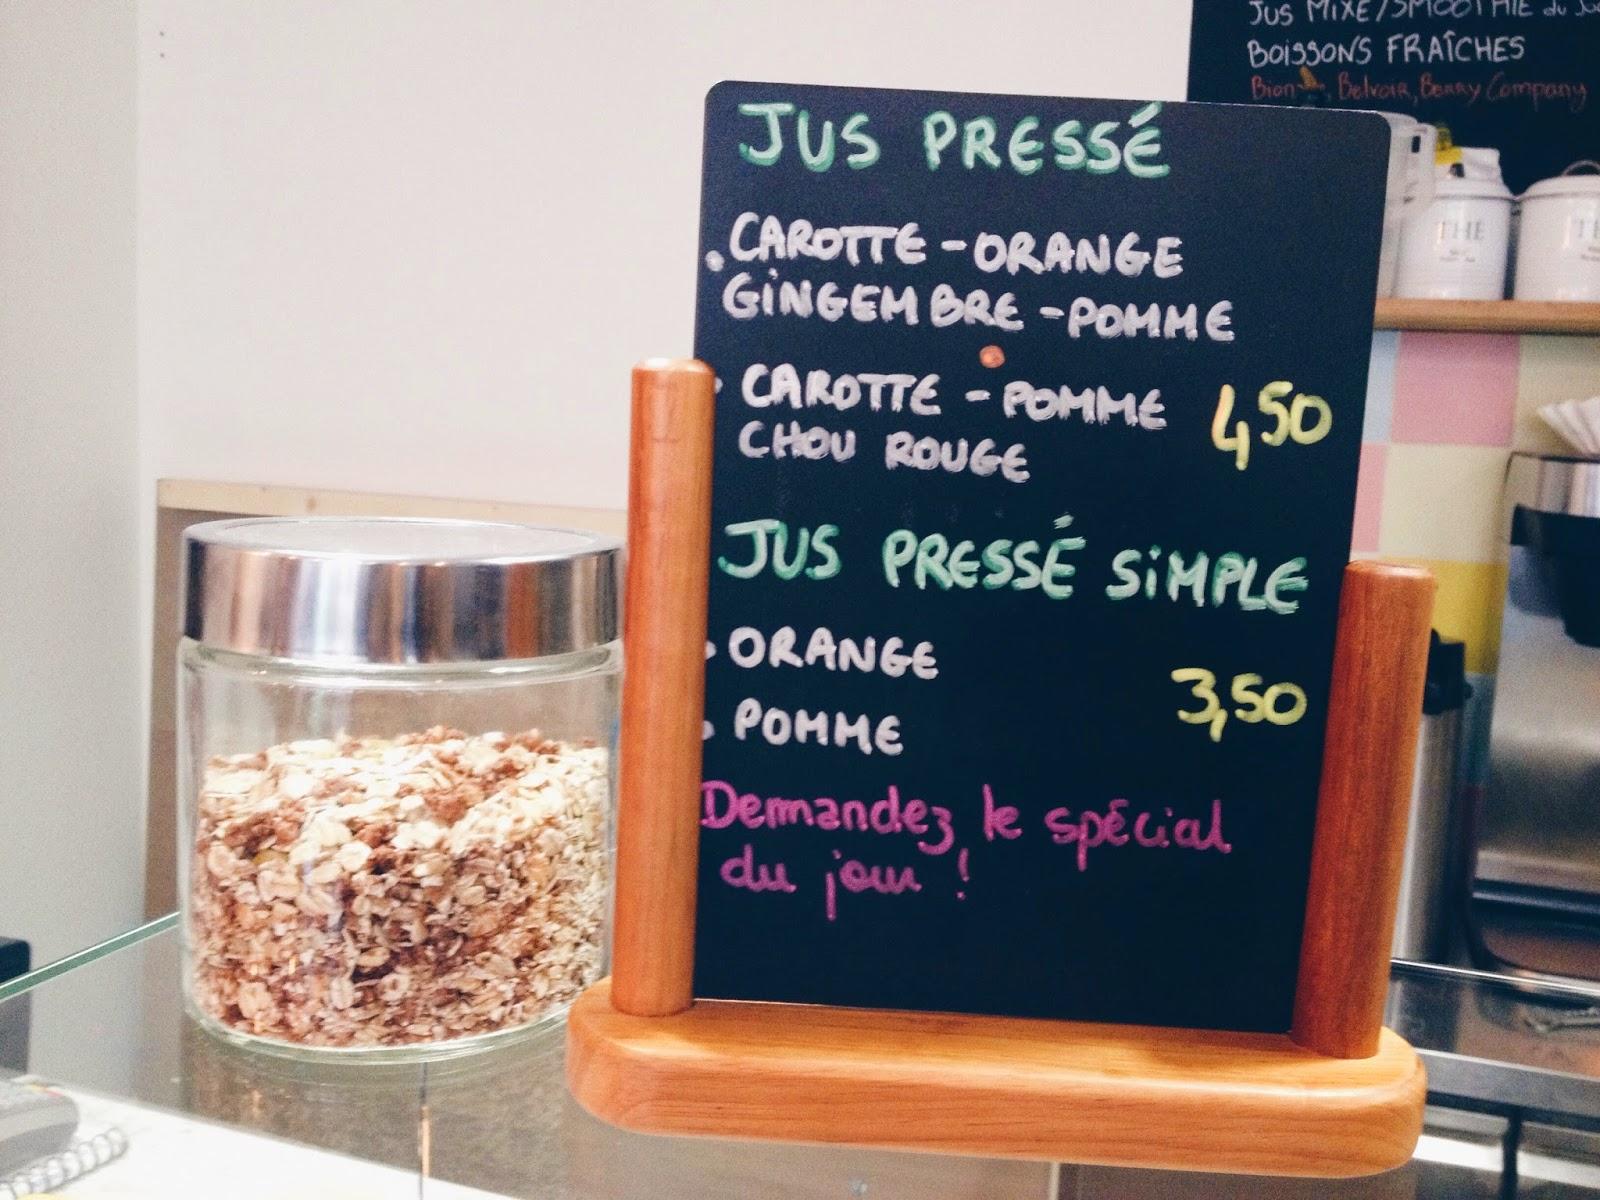 JUS PRESSÉ
. CAROTTE - ORANGE
GINGEMBRE - POMME
. CAROTTE - POMME 4,50
CHOU ROUGE
JUS PRESSÉ SIMPLE
. ORANGE
3,50
. POMME
Demandez le spécial
du jour !
JUS MIXÉ/SMOOTHIE du
BOISSONS FRAÎCHES
Belvoir, Berry Company
THE